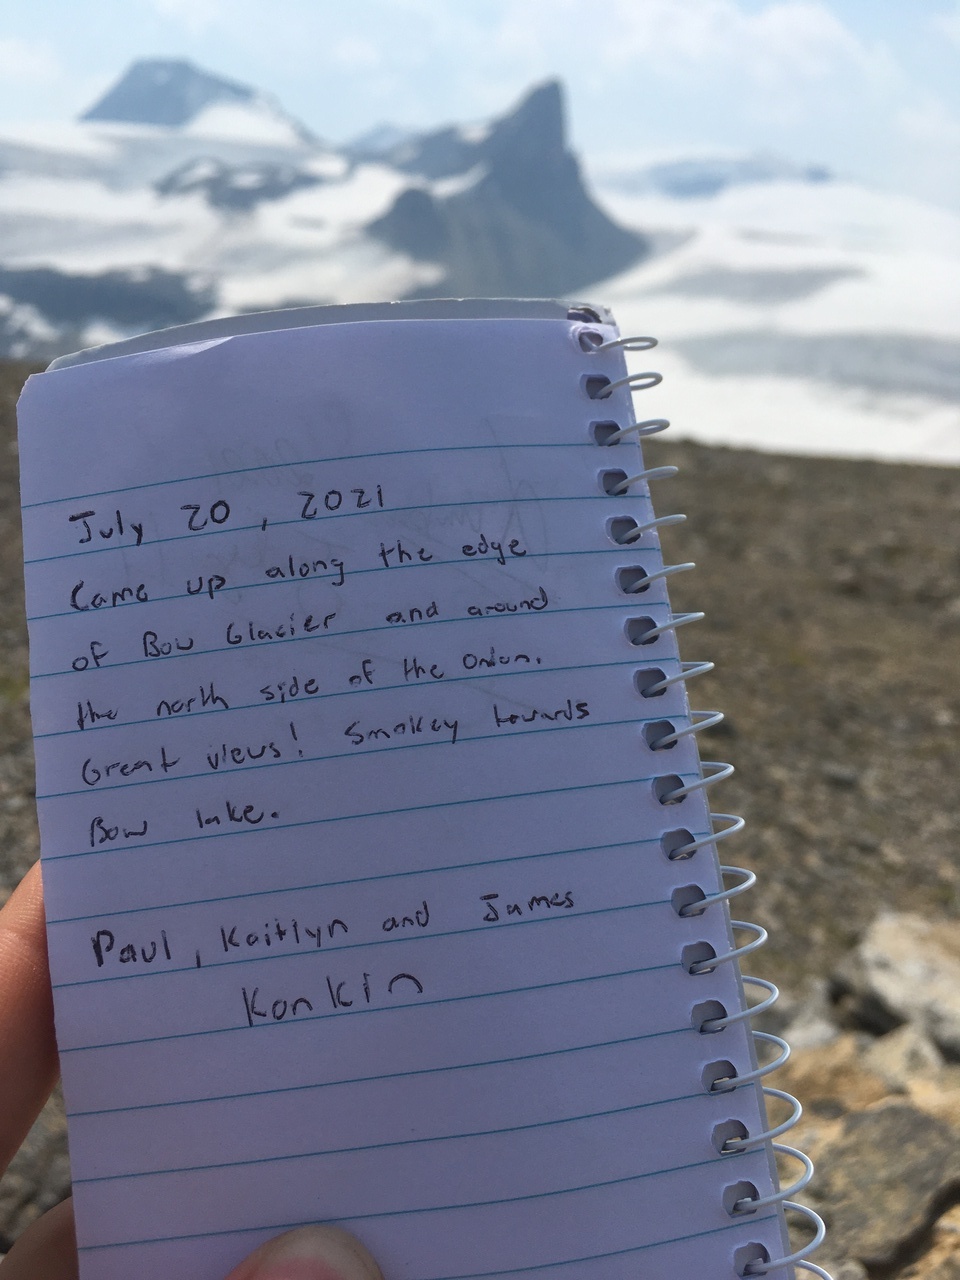 July 20, 2021
Came up along the edge
of Bow Glacier and around
the north side of the Onion.
Great views! Smokey towards
Bow lake.
Paul, Kaitlyn and James
Konkin